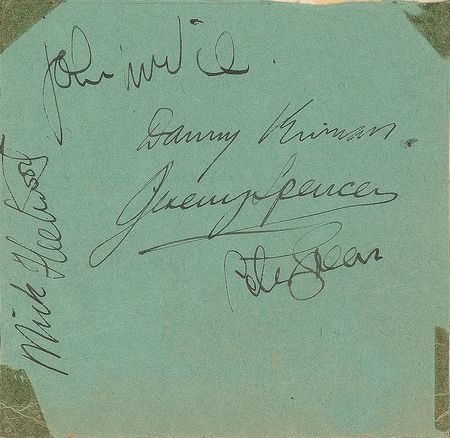 John McVie
Danny Kirwan.
Jeremy Spencer
Peter Green
Mick Fleetwood